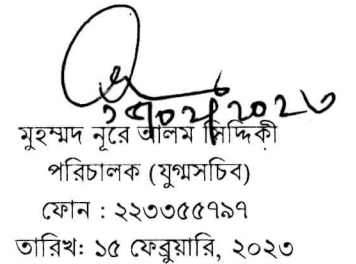 ১৫/০২/২০২৩
মুহম্মদ নূরে আলম সিদ্দিকী
পরিচালক (যুগ্মসচিব)
ফোন : ২২৩৩৫৫৭৯৭
তারিখ: ১৫ ফেব্রুয়ারি, ২০২৩